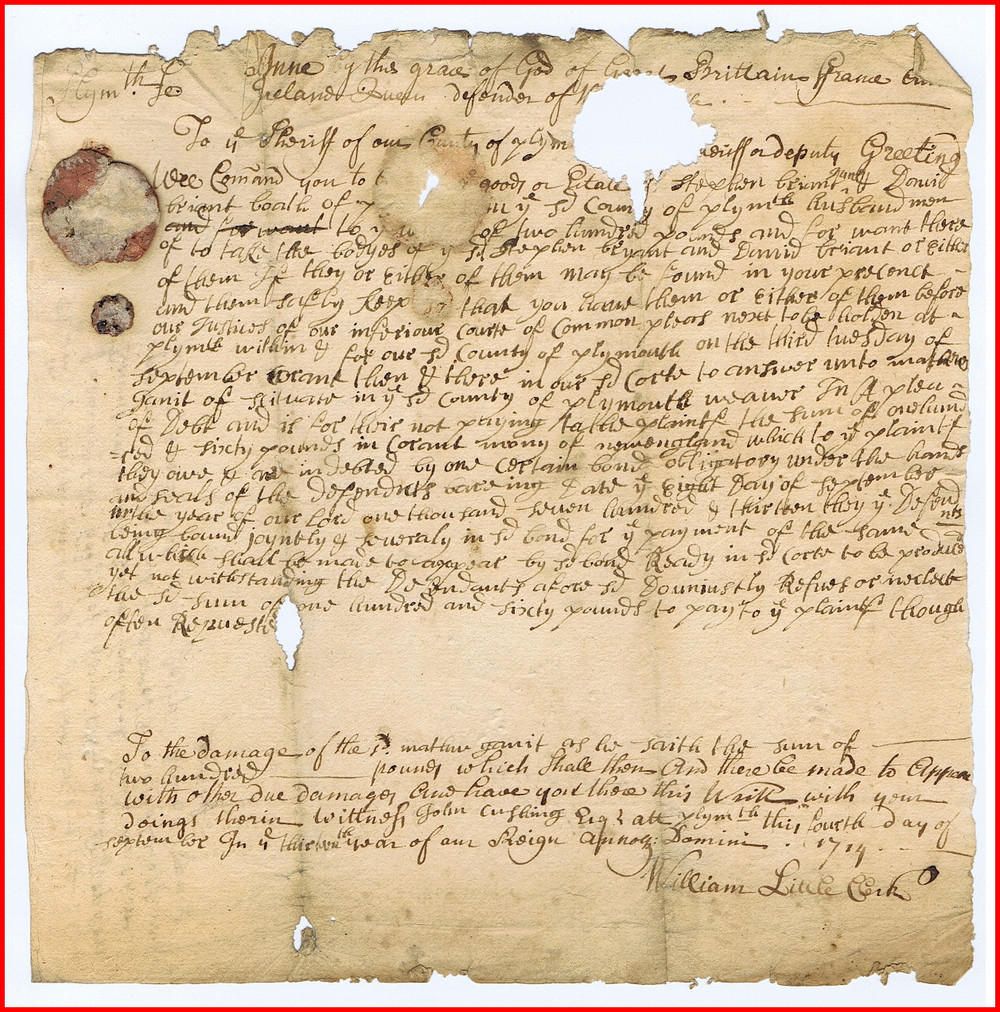 Plymth Sc Anne by the grace of God of Great Brittain France
Ireland Queen defender of
To ye Sheriff of our County of plym or deputy Greeting
Wee Comand you to goods or Estate Stephen briant Junr & David
briant boath of in ye sd County of plymth husbandmen
and for want to ye of two hundred pounds and for want there
of to take the bodyes of ye sd Stephen bryant and David briant or Either
of them If they or Either of them may be found in your precenct
and them safely Keep so that you have them or Either of them before
our Justices of our inferiour Courte of Common pleas next to be holden at
plymth within & for our sd County of plymouth on the third tuesday of
September Corant then & there in our sd Corte to answer unto mathew
Ganit of Situate in ye sd County of plymouth weaver In A plea
of Debt and is for their not paying the plaintf the sum of onehund
red & sixty pounds in Corant mony of newengland which to ye plaintf
they owe & are indebted by one Certain bond obligatory under the hands
and seals of the Defendnts bareing Date ye Eight Day of September
in the year of our lord one thousand seven hundred & thirteen they ye Defend
nts
being bound joyntly & severaly in sd bond for ye payment of the same
all which shall be made to appear by sd bond Ready in sd Corte to be produced
yet not withstanding the Defendants afore sd Do unjustly Refues or neclect
the sd sum of one hundred and sixty pounds to pay to ye plaintf though
often Requeste
To the damage of the sd. mathew ganit as he saith the sum of
two hundred pounds which shall then And there be made to Appear
with other due damages And have you there this Writt with your
doings therin Wittness John Cushing Esqr att plymth this fourth day of
September In ye thirteenth year of our Reign Annoq: Domini . 1714
William Little Clerk